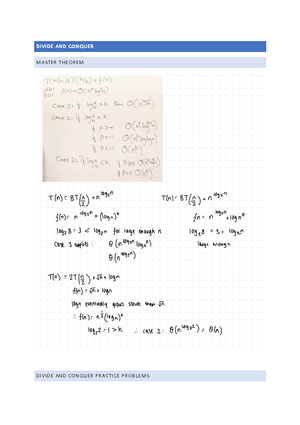 DIVIDE AND CONQUER
MASTER THEOREM
T(n) = aT(n/b) + f(n)
a≥1 f(n) = Θ(n^k log^p n)
b>1
Case 1: if log_b a > k then Θ(n^log_b a)
Case 2: if log_b a = k
if p>-1 Θ(n^k log^p+1 n)
if p=-1 Θ(n^k loglogn)
if p<-1 Θ(n^k)
Case 3: if log_b a < k if p≥0 Θ(n^k log^p n)
if p<0 Θ(n^k)
T(n) = 8T(n/2) + n^log₂n
f(n) = n^log₂n × (logn)^0
log₂8 = 3 < log₂n for large enough n
Case 3 applies: Θ(n^log₂n log^0 n)
Θ(n^log₂n)
T(n) = 8T(n/2) + n
fn =
log₂8 = 3
large enough
T(n) = 2T(n/2) + √n + logn
f(n) = √n + logn
logn eventually grows slower than √n
∴ f(n) = n^½ (logn)^0
log₂2 = 1 > k ∴ case 1: Θ(n^log₂2) = Θ(n)
DIVIDE AND CONQUER PRACTICE PROBLEMS